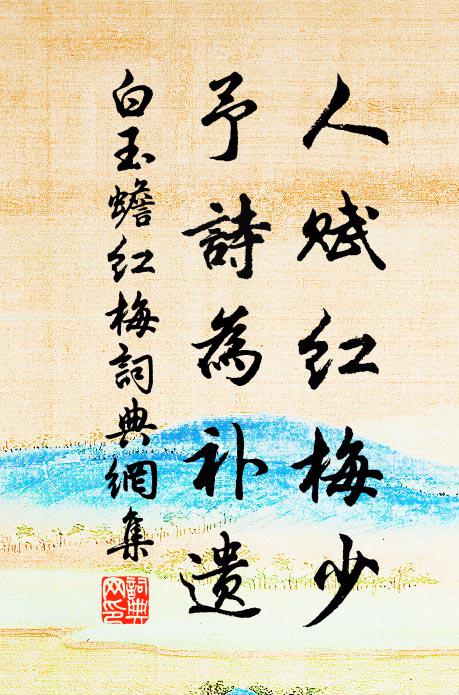 人賦红梅少
予詩為补遗
白玉蟾红梅詞典網集
詞典